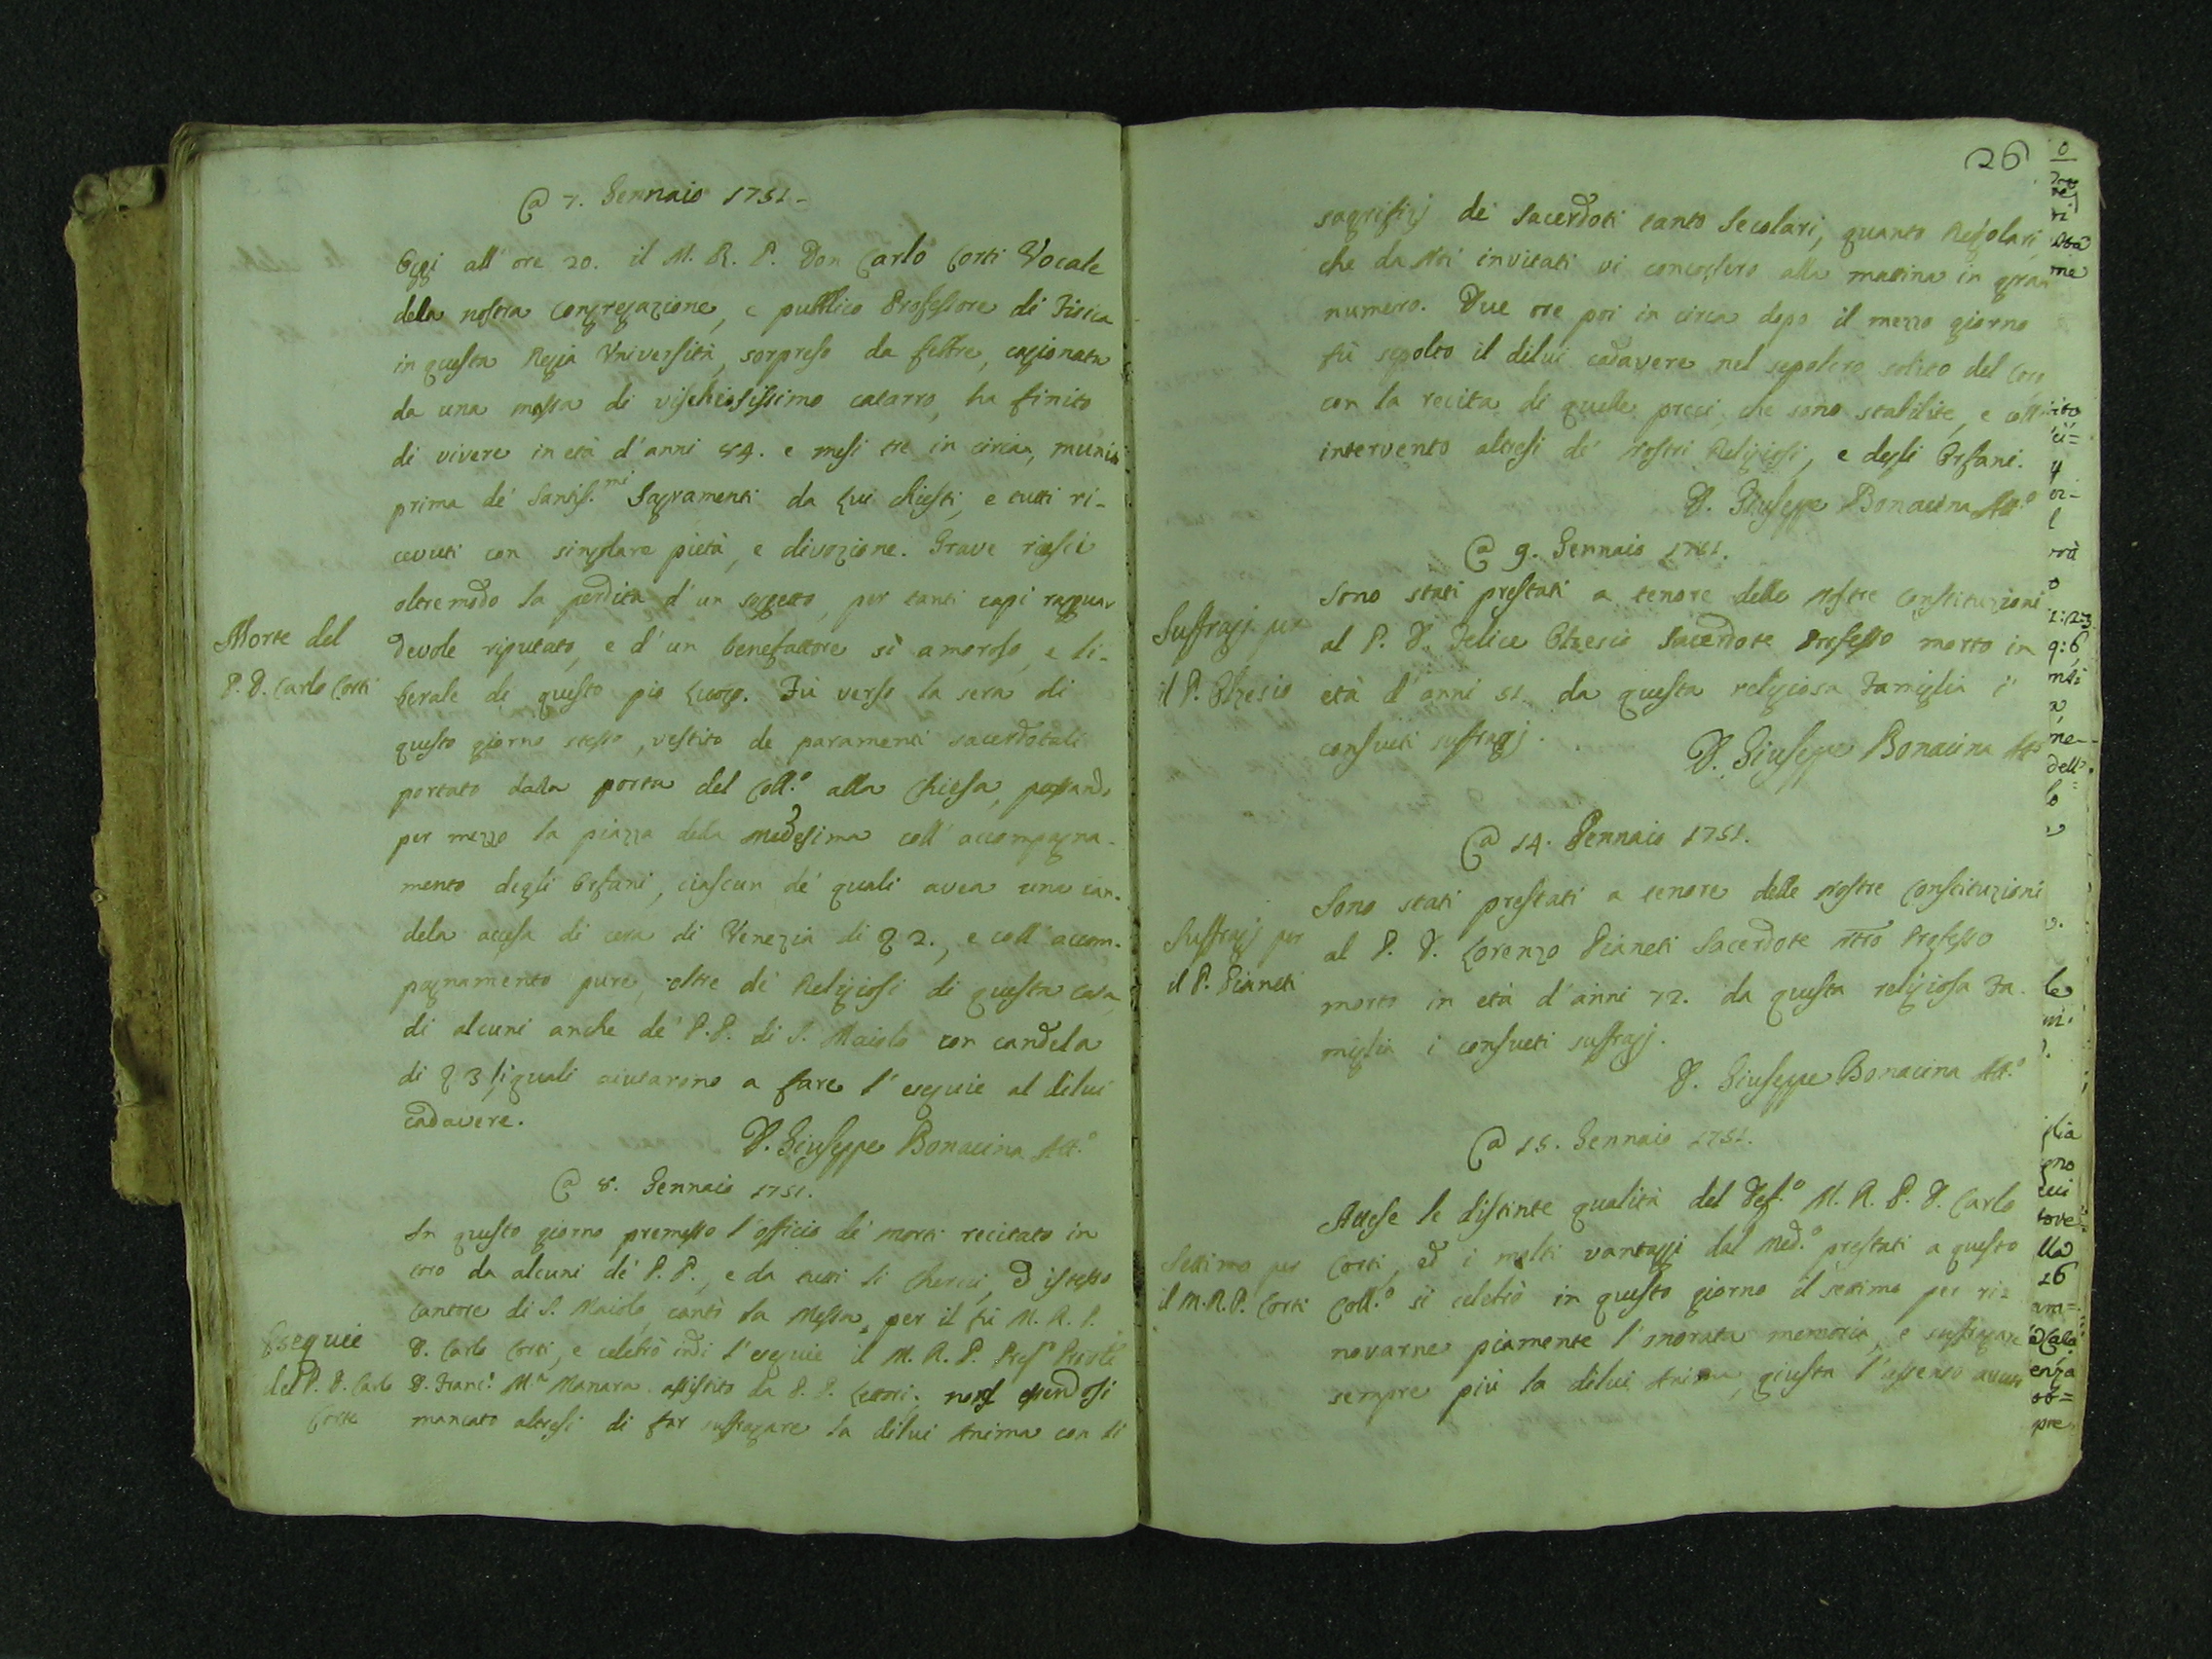 @ 7. Gennaio 1751.
Oggi all' ore 20. il M. R. P. Don Carlo Corti Vocale
della nostra Congregazione, e pubblico Professore di Fisica
in questa Regia Università, sorpreso da febbre, cagionata
da una massa di vischiosissimo catarro, ha finito
di vivere in età d'anni 54. e mesi tre in circa, munito
prima de' Santiss.mi Sagramenti da Lui chiesti, e tutti ri-
cevuti con singolare pietà, e divozione. Grave riuscì
oltremodo la perdita d'un soggetto, per tanti capi ragguar
devole riputato, e d'un benefattore sì amoroso, e li-
berale di questo pio Luogo. Fù verso la sera di
questo giorno stesso, vestito de paramenti sacerdotali
portato dalla porta del Coll.o alla Chiesa, passando
per mezzo la piazza della medesima coll' accompagna-
mento degli Orfani, ciascun de' quali avea una can-
dela accesa di cera di Venezia di 2., e coll' accom-
pagnamento pure, oltre de' Religiosi di questa casa,
di alcuni anche de' P.P. di S. Maiolo con candela
di 3, li quali aiutarono a fare l'esequie al dilui
cadavere.
D. Giuseppe Bonacina Att.o
Morte del
P. D. Carlo Corti
@ 8. Gennaio 1751.
In questo giorno premesso l'officio de' morti recitato in
coro da alcuni de' P. P., e da tutti li Cherici, d'istesso
Cantore di S. Maiolo, cantò la Messa, per il fù M. R. P.
D. Carlo Corti, e celebrò indi l'esequie il M. R. P.
D. Franc.o M.a Manara assistito da P. P. Lettori; non essendosi
mancato altresì di far suffragare la dilui Anima con li
Esequie
del P. D. Carlo
Corti
26
sagrifizj dei Sacerdoti tanto Secolari, quanto Regolari,
che da Noi invitati vi concorsero alla mattina in gran
numero. Due ore poi in circa dopo il mezzo giorno
fù sepolto il dilui cadavere nel sepolcro solito del
con la recita di quelle preci, che sono stabilite, e coll'
intervento altresì de' Nostri Religiosi, e degli Orfani.
D. Giuseppe Bonacina Att.o
@ 9. Gennaio 1751.
Sono stati prestati a tenore delle Nostre Constituzioni
al P. D. Felice Sacerdote Professo morto in
età d'anni 51. da questa religiosa Famiglia i
consueti suffragj.
D. Giuseppe Bonacina Att
Suffragj per
il P.
@ 14. Gennaio 1751.
Sono stati prestati a tenore delle Nostre Constituzioni
al P. D. Lorenzo Pianeti Sacerdote ntro Professo
morto in età d'anni 72. da questa religiosa Fa-
miglia i consueti suffragj.
D. Giuseppe Bonacina Att.o
Suffragj per
il P. Pianeti
@ 15. Gennaio 1751.
Attese le distinte qualità del Def.o M. R. P. D. Carlo
Corti, ed i molti vantaggi dal med.o prestati a questo
Coll.o si celebrò in questo giorno il settimo per ri-
novarne piamente l'onorata memoria, e suffragare
sempre più la dilui Anima, giusta l'assenso
Settimo per
il M.R.P. Corti